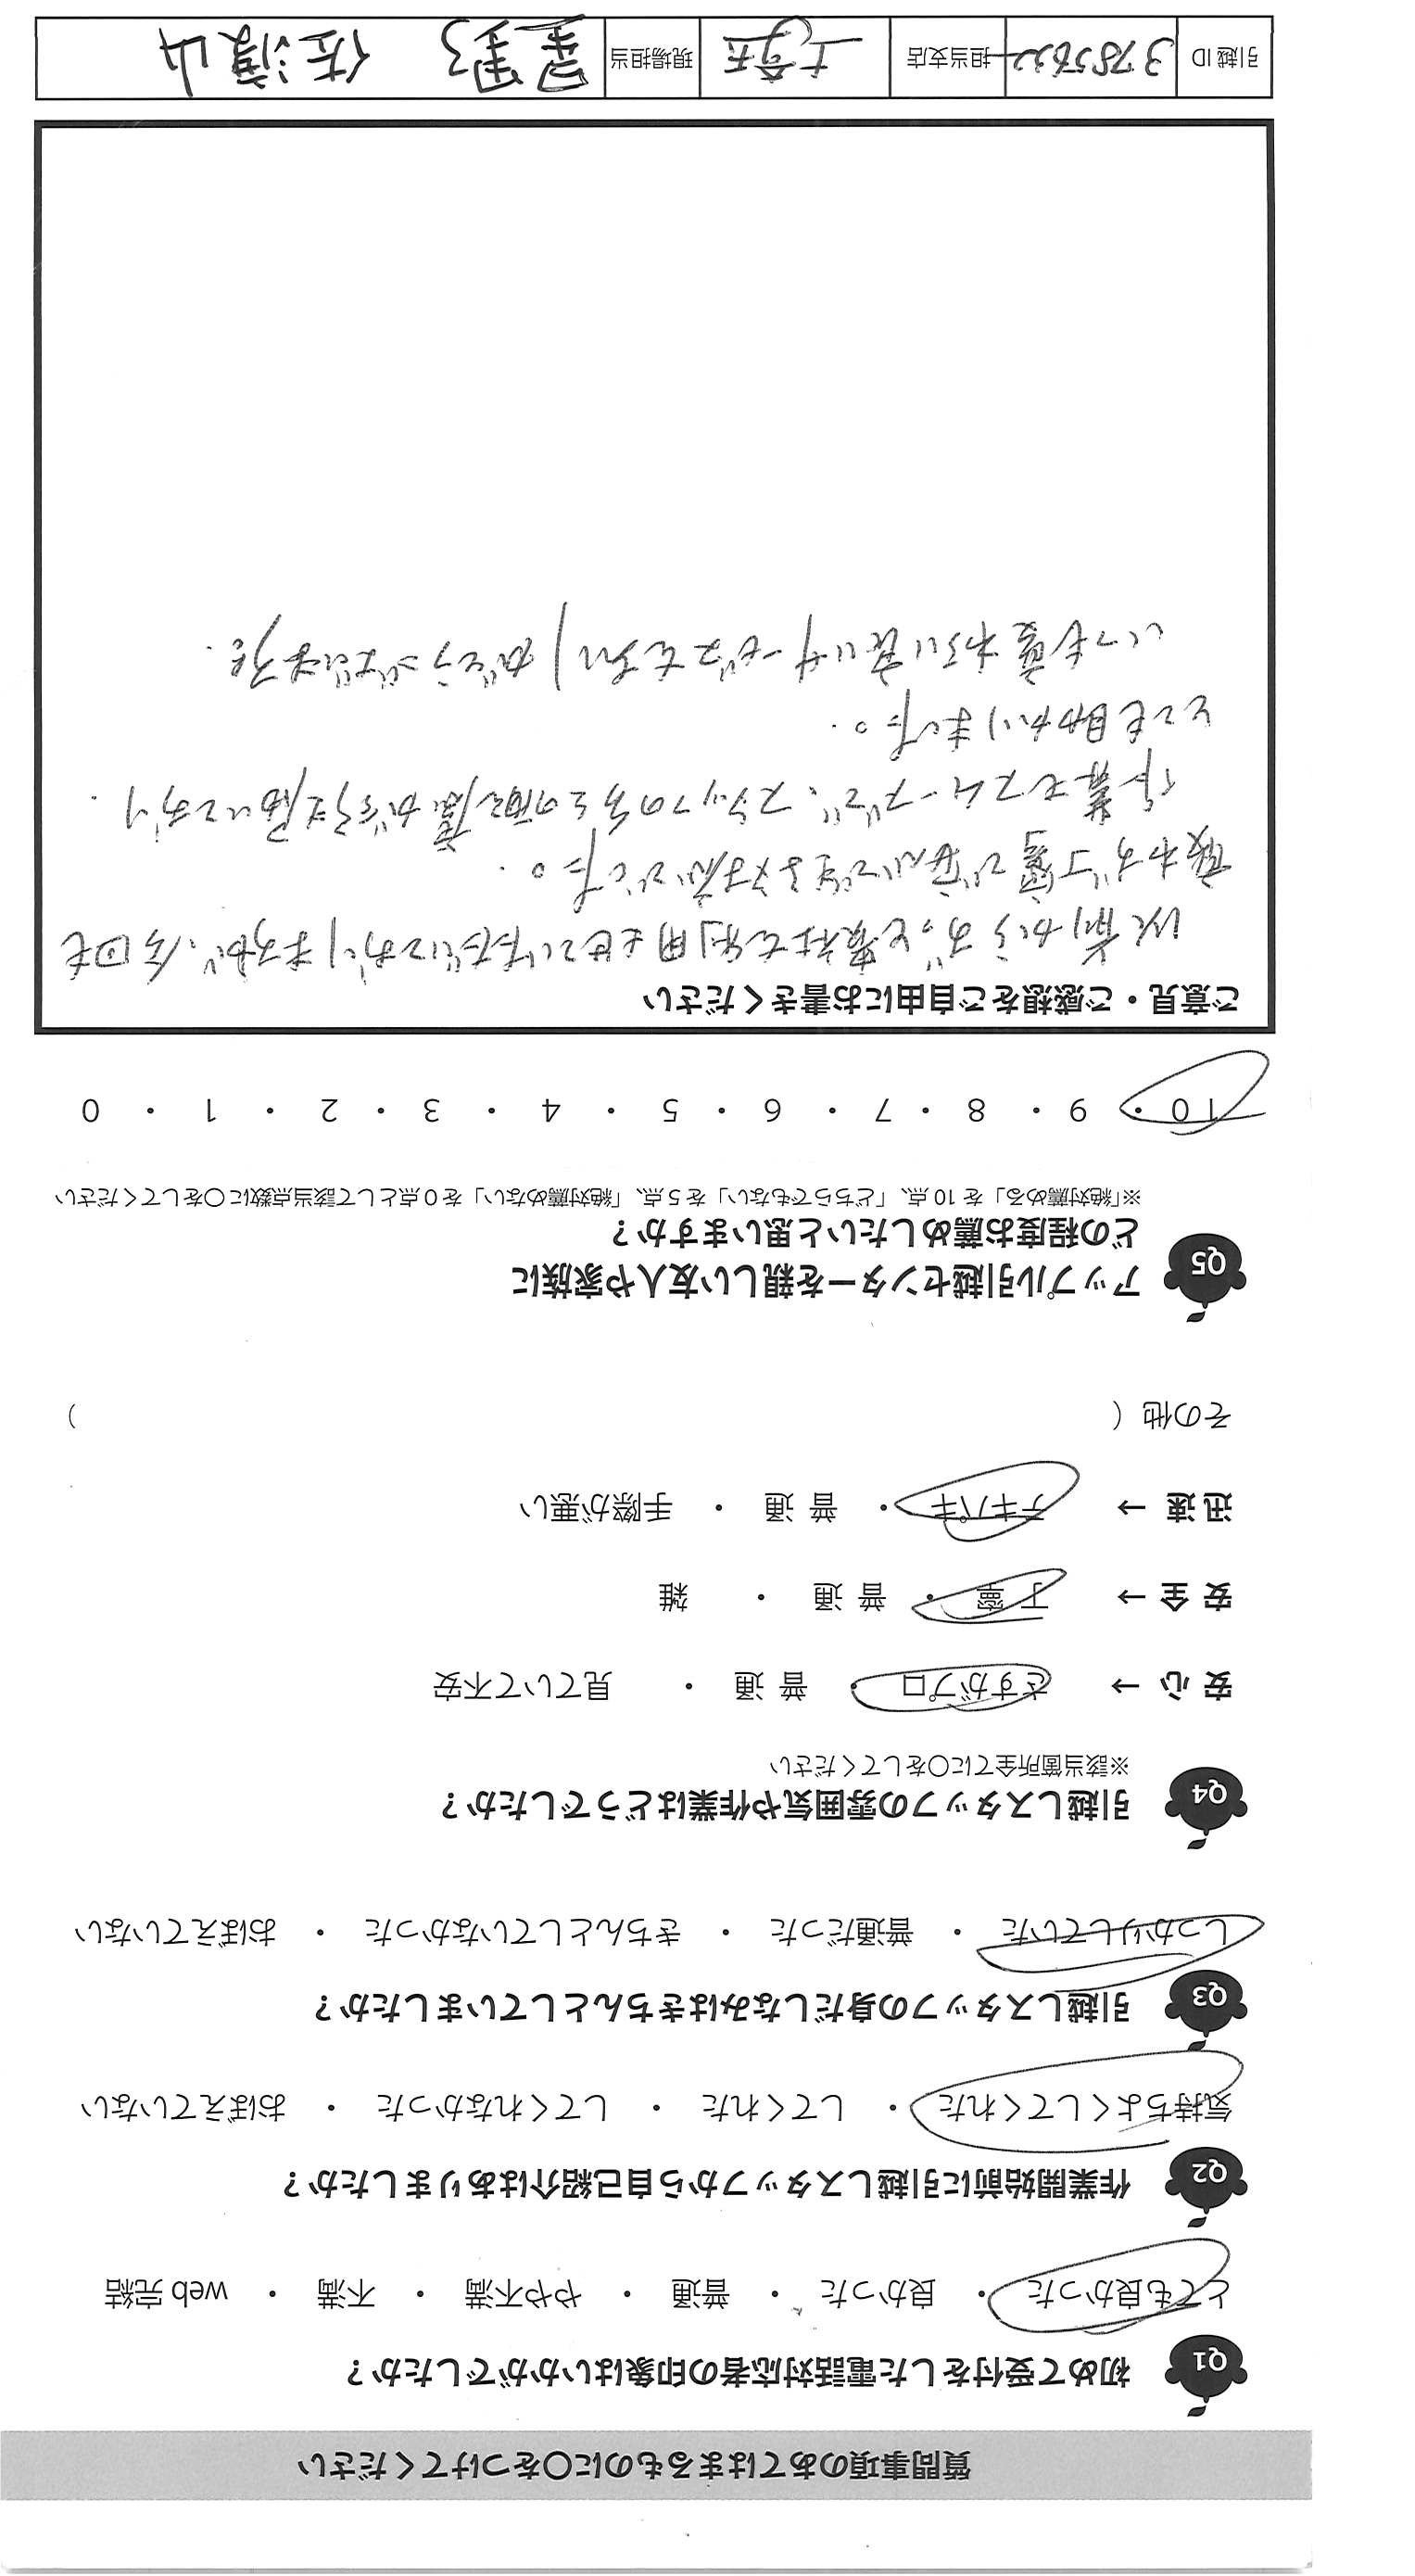 質問事項のあてはまるものに〇をつけてください
Q1 初めて受付をした電話対応者の印象はいかがでしたか?
とても良かった ・ 良かった ・ 普通 ・ やや不満 ・ 不満 ・ web完結
Q2 作業開始前に引越しスタッフから自己紹介はありましたか?
気持ちよくしてくれた ・ してくれた ・ してくれなかった ・ おぼえていない
Q3 引越しスタッフの身だしなみはきちんとしていましたか?
しっかりしていた ・ 普通だった ・ きちんとしていなかった ・ おぼえていない
Q4 引越しスタッフの雰囲気や作業はどうでしたか?
※該当箇所全てに〇をしてください
安 心 → さすがプロ ・ 普 通 ・ 見ていて不安
安 全 → 丁 寧 ・ 普 通 ・ 雑
迅 速 → テキパキ ・ 普 通 ・ 手際が悪い
その他 ( )
Q5 アップル引越センターを親しい友人や家族に
どの程度お薦めしたいと思いますか?
※「絶対薦める」を10点、「どちらでもない」を5点、「絶対薦めない」を0点として該当点数に〇をしてください
10 ・ 9 ・ 8 ・ 7 ・ 6 ・ 5 ・ 4 ・ 3 ・ 2 ・ 1 ・ 0
ご意見・ご感想をご自由にお書きください
以前からずっと貴社を利用させていただいておりますが、今回も
変わらず丁寧で安心できる対応でした。
作業もスムーズで、スタッフの方との配慮が行き届いており
とても助かりました。
いつも変わらい良いサービスをありがとうございます。
引越ID 3785622 担当支店 現場担当 星野 佐濱山